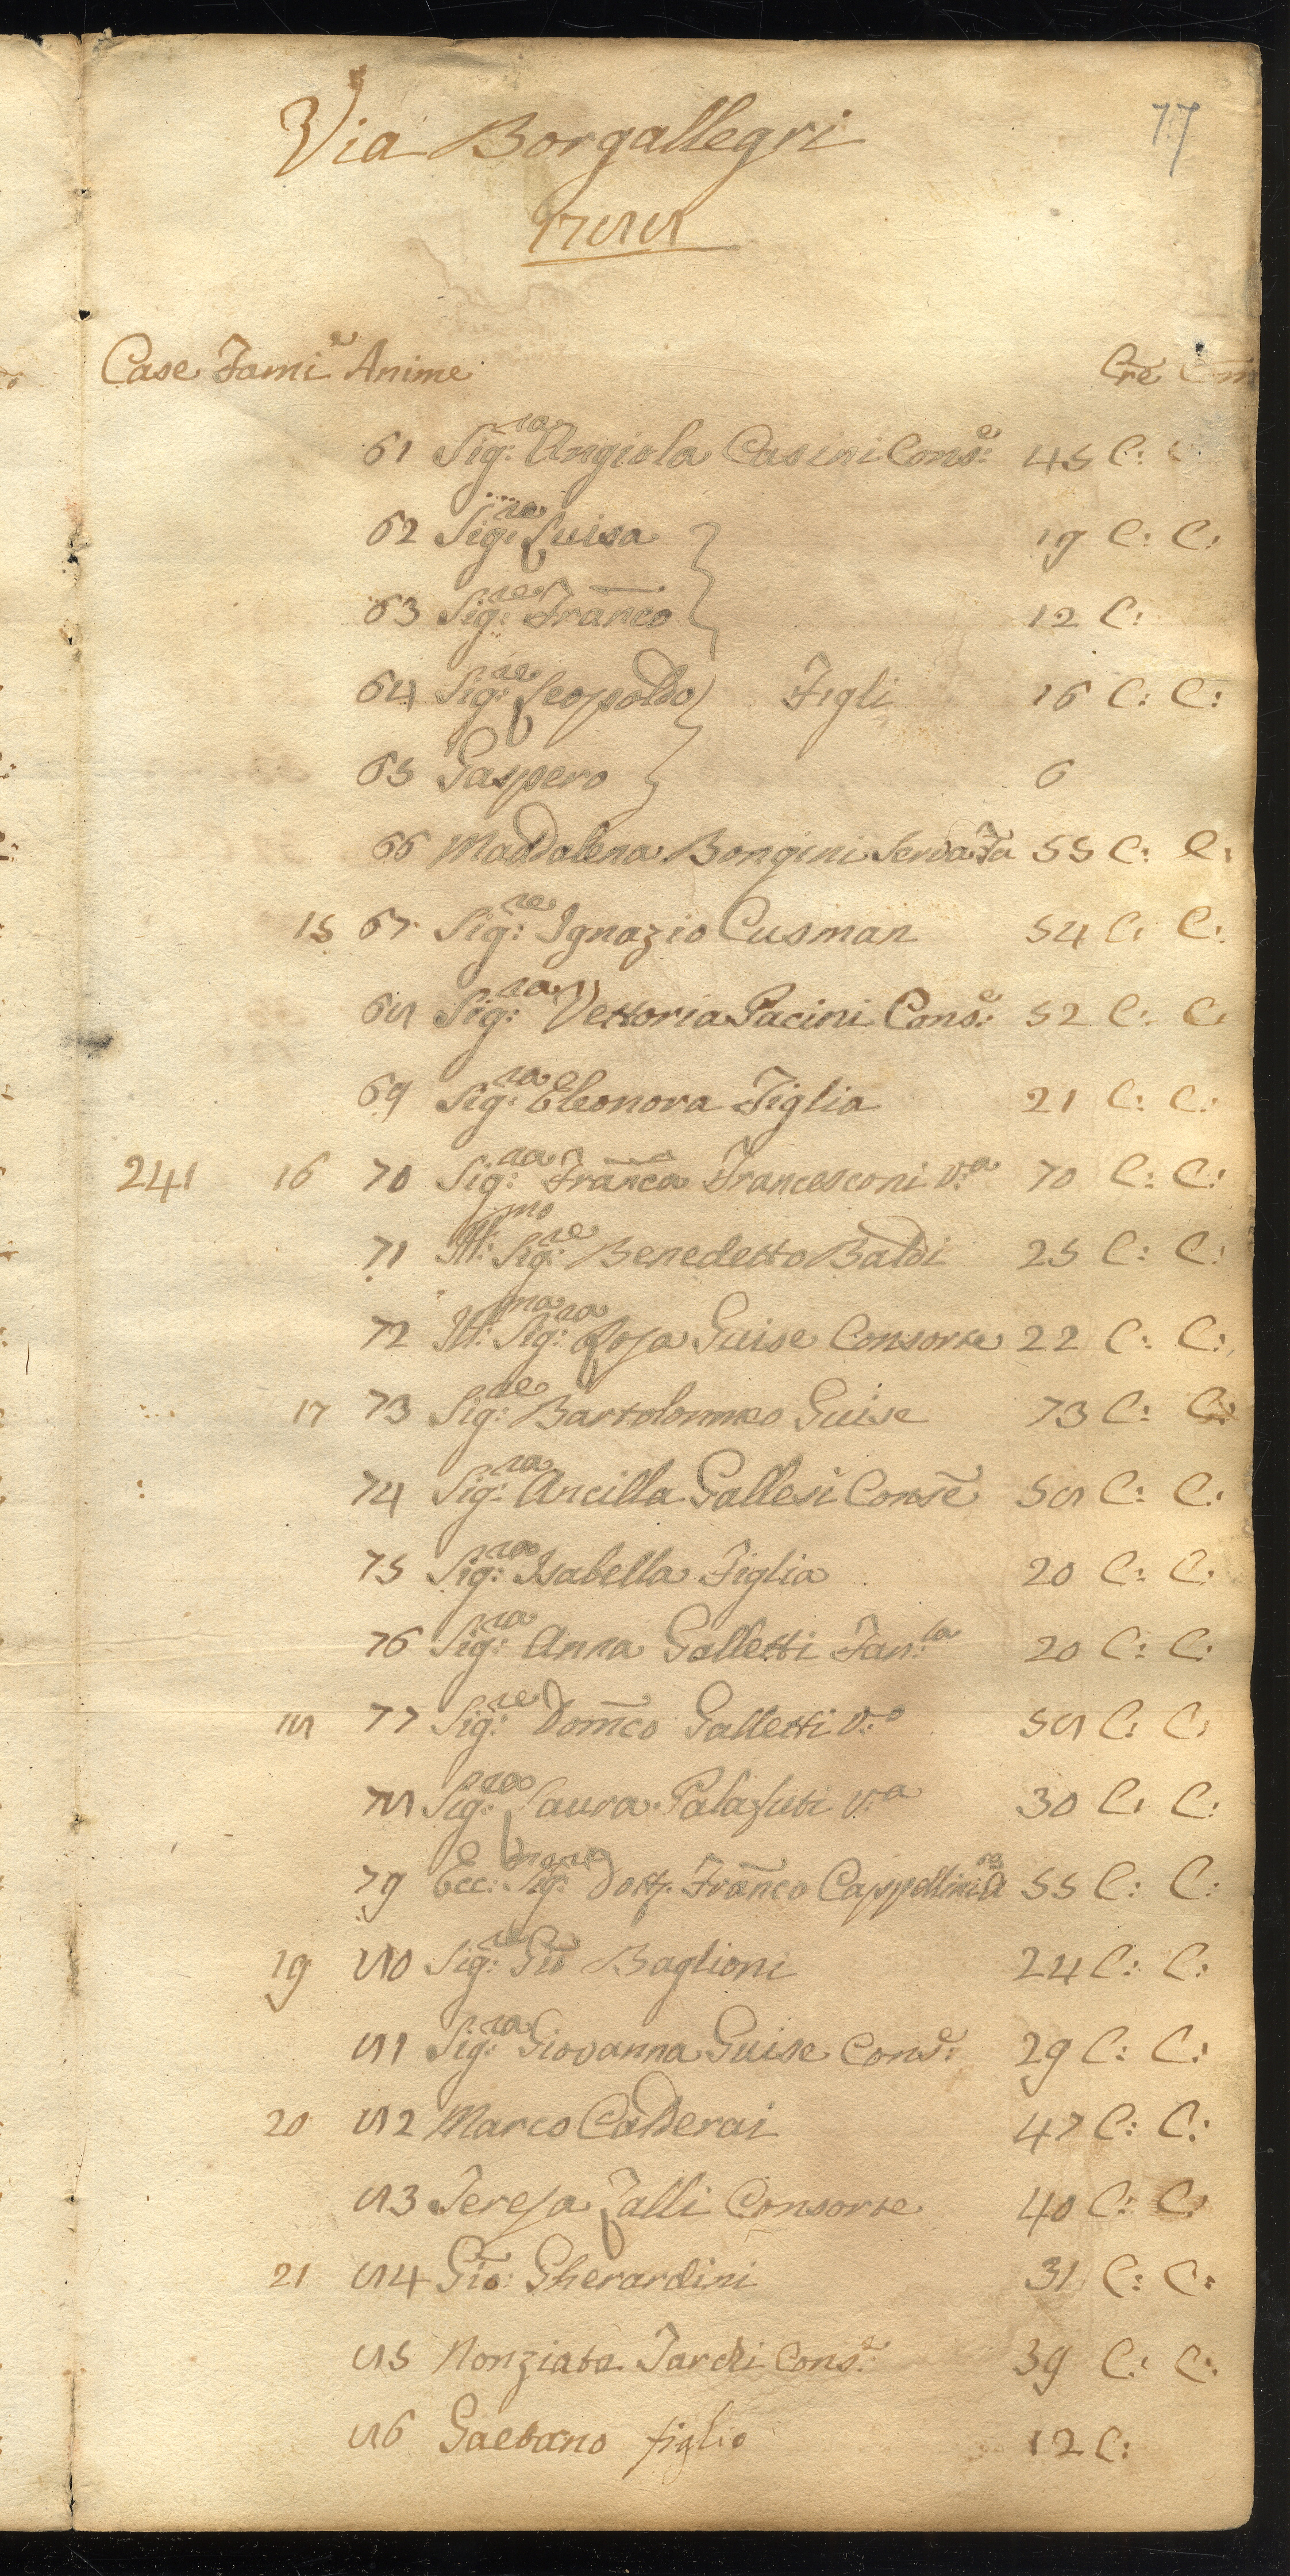 77
Via Borgallegri
1788
Case Fami.e Anime Cre Com
61 Sig:ra Angiola Casini Cons:e 45 C:
62 Sig:ra Luisa 19 C: C:
63 Sig:re Franco 12 C:
64 Sig:re Leopoldo Figli 16 C: C:
65 Gaspero 6
66 Maddalena Bongini Serva Fa 55 C: C:
15 67 Sig:re Ignazio Cusman 54 C: C:
68 Sig:ra Vettoria Pacini Cons:e 52 C: C:
69 Sig:ra Eleonora Figlia 21 C: C:
241 16 70 Sig:ra Franca Francesconi V:a 70 C: C:
71 Ill:mo Sig:re Benedetto Baldi 25 C: C:
72 Ill:ma Sig:ra Rosa Guise Consorte 22 C: C:
17 73 Sig:re Bartolommeo Guise 73 C: C:
74 Sig:ra Ancilla Gallesi Conse 58 C: C:
75 Sig:ra Isabella Figlia 20 C: C:
76 Sig:ra Anna Galletti Fan:la 20 C: C:
18 77 Sig:re Domco Galletti V:o 58 C: C:
78 Sig:ra Laura Palazuti V:a 30 C: C:
79 Ecc:mo Sig:re Dott. Franco Cappellini 55 C: C:
19 80 Sig:re Gio Baglioni 24 C: C:
81 Sig:ra Giovanna Guise Cons:e 29 C: C:
20 82 Marco Calderai 47 C: C:
83 Teresa Zalli Consorte 40 C: C:
21 84 Gio: Gherardini 31 C: C:
85 Nonziata Tardi Cons:e 39 C: C:
86 Gaetano figlio 12 C: